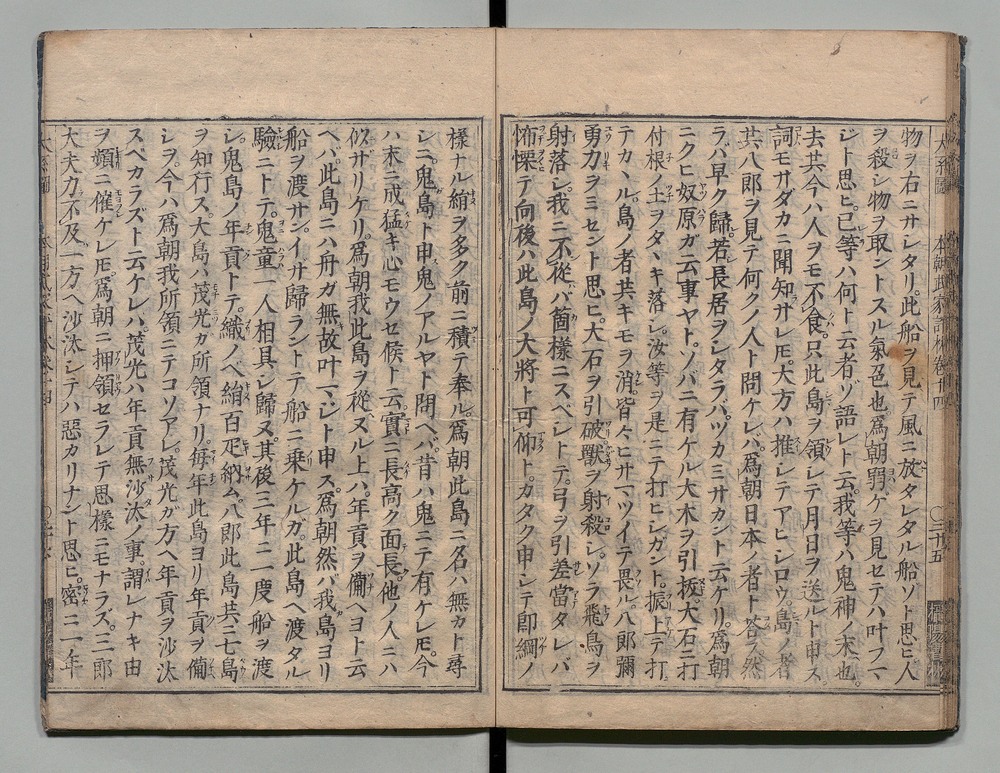 物ヲ右ニサレタリ。此船ヲ見テ風ニ放タレタル船ゾト思ヒ。人
ヲ殺シ物ヲ取ントスル氣色也。爲朝弱ゲヲ見セテハ叶フマ
ジト思ヒ。已等ハ何ト云者ゾ語レト云。我等ハ鬼神ノ末也。
去共今ハ人ヲモ不食。只此島ヲ領シテ月日ヲ送ルト申ス。
詞モサダカニ聞知サレモ。大方ハ推シテアヒシロウ。島ノ者
共八郎ヲ見テ何クノ人ト問ケレバ。爲朝日本ノ者ト答。然
ラバ早ク歸。若長居ヲシタラバ。ヅカミサカント云ケリ。爲朝
ニクヒ奴原ガ云事ヤト。ソバニ有ケル大木ヲ引拔大石ニ打
付根ノ土ヲタヽキ落シ。汝等ヲ是ニテ打ヒシガント。振上テ打
テカヽル。島ノ者共キモヲ消。皆々ヒサマツイテ畏ル。八郎彌
勇力ヲミセント思ヒ。大石ヲ引破獸ヲ射殺シ。ソラ飛鳥ヲ
射落シ。我ニ不從バ箇樣ニスベシトテ。弓ヲ引差當タレバ
怖慄テ向後ハ此島ノ大將ト可仰ト。カタク申シテ即綱ノ
樣ナル絹ヲ多ク前ニ積テ奉ル。爲朝此島ニ名ハ無カト尋
シニ。鬼島ト申鬼ノアルヤト問ヘバ。昔ハ鬼ニテ有ケレモ。今
ハ末ニ成猛キ心モウセ候ト云。實ニ長高ク面長。他ノ人ニハ
似サリケリ。爲朝我此島ヲ從ヌル上ハ。年貢ヲ備ヘヨト云
ヘバ。此島ニハ舟ガ無故叶マジト申ス。爲朝然バ我島ヨリ
船ヲ渡サン。イサ歸ラントテ船ニ乗ケルガ。此島ヘ渡タル
驗ニトテ。鬼童一人相具シ歸又。其後三年ニ一度船ヲ渡
シ。鬼島ノ年貢トテ。織ノベ絹百疋納ム。八郎此島共ニ七島
ヲ知行ス。大島ハ茂光カ所領ナリ。毎年此島ヨリ年貢ヲ備
シヲ。今ハ爲朝我所領ニテコソアレ。茂光ガ方ヘ年貢ヲ沙汰
スベカラズト云ケレバ。茂光ハ年貢無沙汰ノ事。謂レナキ由
ヲ頻ニ催ケレモ。爲朝ニ押領セラレテ思樣ニモナラズ。三郎
大夫力不及。一方ヘ沙汰シテハ惡カリナント思ヒ。密ニ一年